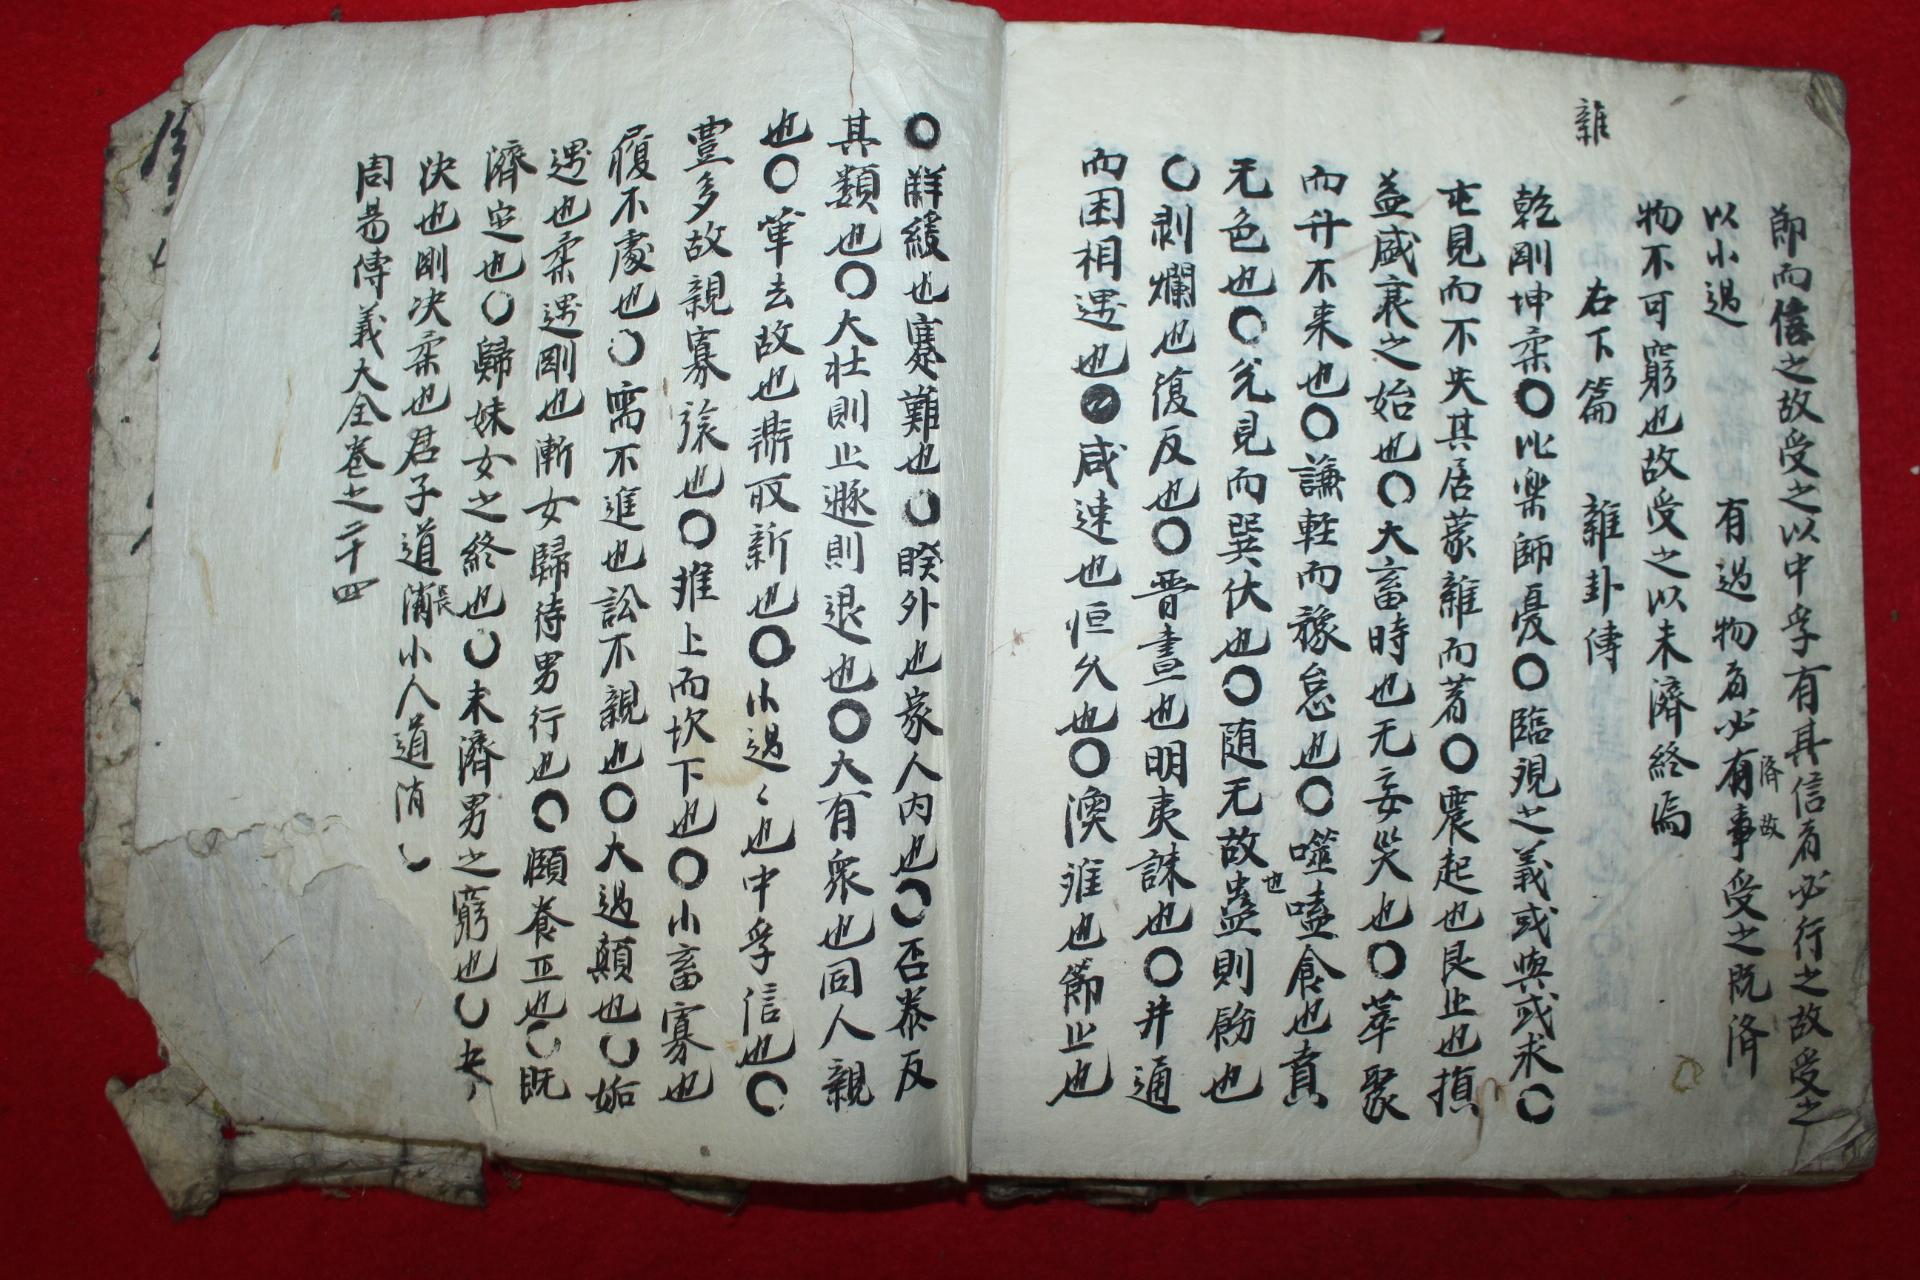 雜
節而信之故受之以中孚有其信者必行之故受之
以小過 有過物者必有事受之既済
済故
物不可窮也故受之以未濟終焉
右下篇 雜卦傳
乾剛坤柔〇比楽師憂〇臨覌之義或與或求〇
屯見而不失其居蒙雜而著〇震起也艮止也損
益盛衰之始也〇大畜時也无妄灾也〇萃聚
而升不来也〇謙軽而豫怠也〇噬嗑食也賁
无色也〇兊見而巽伏也〇随无故也蠱則飭也
〇剥爛也復反也〇晋晝也明夷誅也〇井通
而困相遇也〇咸速也恒久也〇渙離也節止也
〇解緩也蹇難也〇睽外也家人内也〇否泰反
其類也〇大壮則止遯則退也〇大有衆也同人親
也〇革去故也鼎取新也〇小過〻也中孚信也〇
豊多故親寡旅也〇離上而坎下也〇小畜寡也
履不處也〇需不進也訟不親也〇大過顛也〇姤
遇也柔遇剛也漸女歸待男行也〇頤養正也〇既
濟定也〇歸妹女之終也〇未濟男之窮也〇夬
决也剛决柔也君子道長小人道消
周易傳義大全卷之二十四